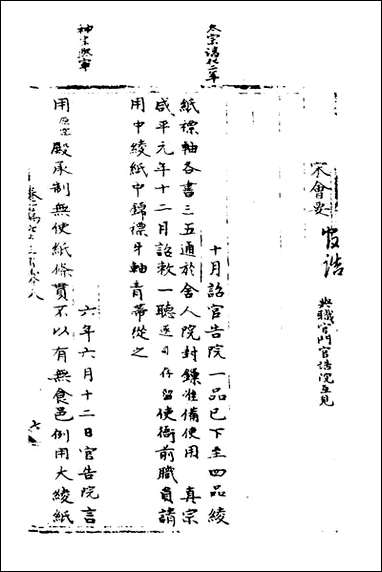 宋會要
官誥
與職官門官誥院互見
太宗淳化二年
十月詔官告院一品已下至四品綾
紙褾軸各書三五通於舍人院封鏁准備使用 真宗
咸平元年十二月詔敕一聽逐司存留使衙前職員請
用中綾紙中錦褾牙軸青帶從之
神宗熙寧
六年六月十二日官告院言
用 殿承制無使紙條貫不以有無食邑例用大綾紙